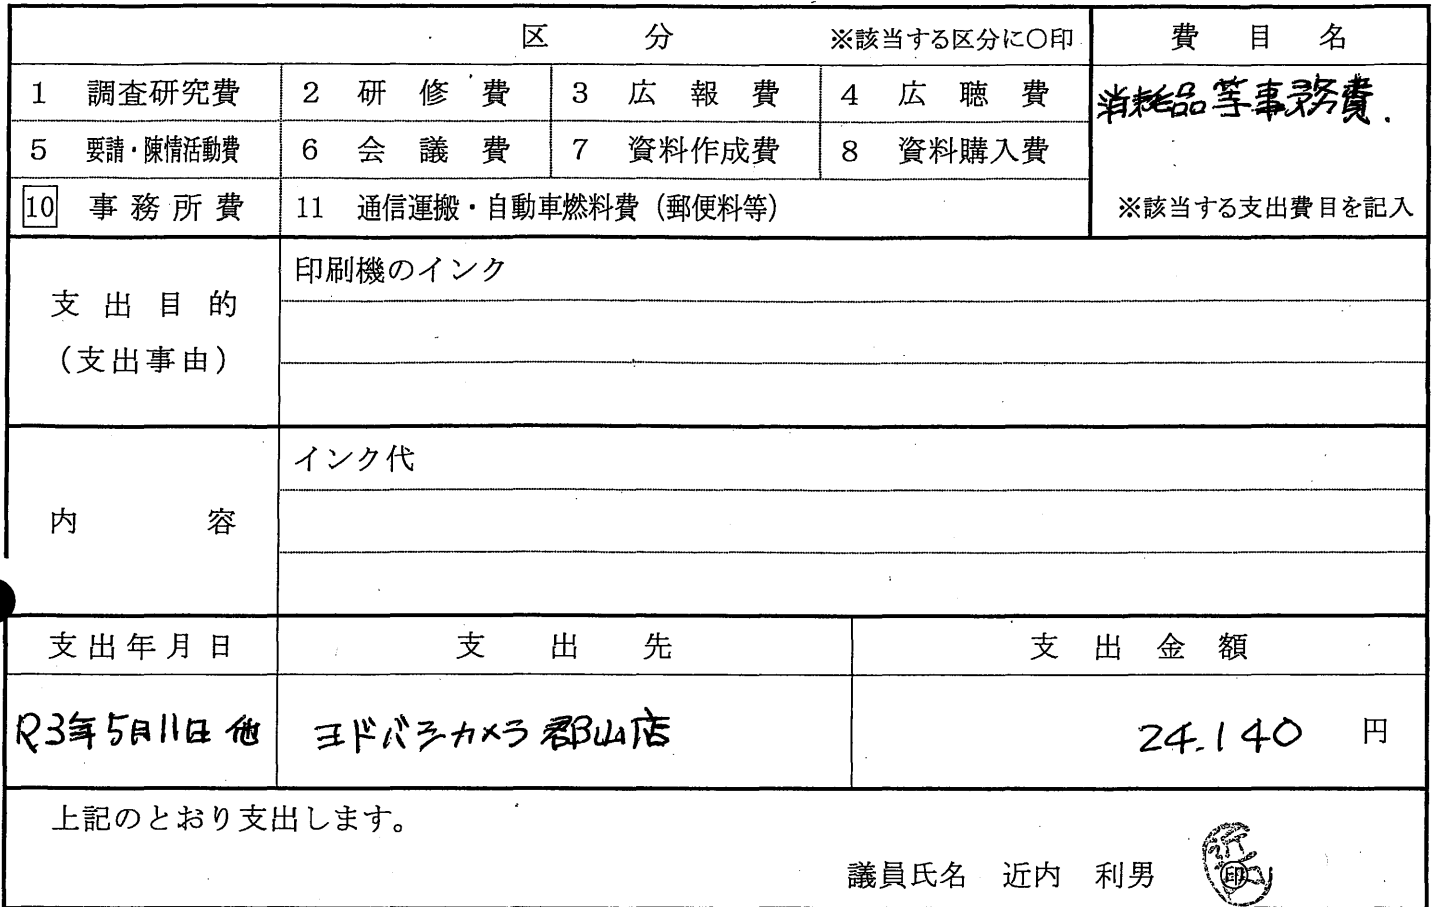 区 分 ※該当する区分に〇印 費目名
1 調査研究費 2 研修費 3 広報費 4 広聴費 消耗品等事務費.
5 要請・陳情活動費 6 会議費 7 資料作成費 8 資料購入費
10 事務所費 11 通信運搬・自動車燃料費（郵便料等） ※該当する支出費目を記入
支出目的
（支出事由）
印刷機のインク
内容
インク代
支出年月日 支出先 支出金額
R3年5月11日 他 ヨドバシカメラ 郡山店 24.140 円
上記のとおり支出します。
議員氏名 近内 利男 近内 印